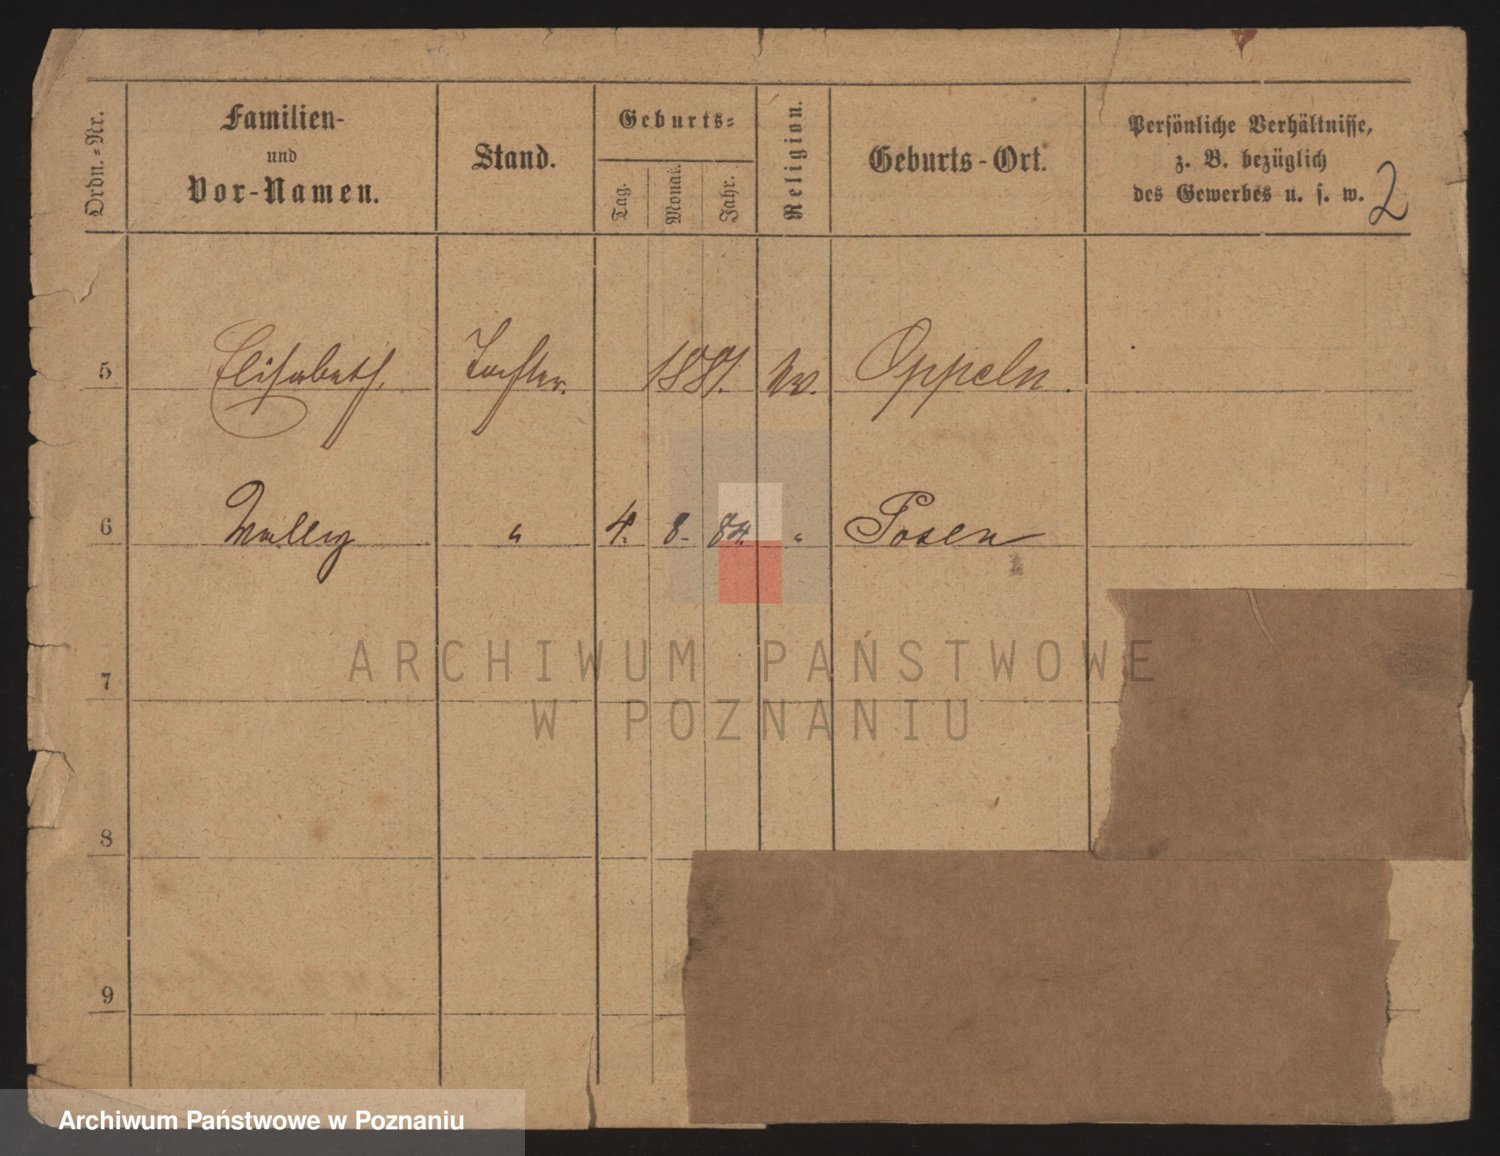 Ordn.-Nr.
Familien-
und
Vor-Namen.
Stand.
Geburts-
Tag.
Monat.
Jahr.
Religion.
Geburts-Ort.
Persönliche Verhältnisse,
z. B. bezüglich
des Gewerbes u. s. w.
2
5 Elisabeth. Tochter. 1881. Oppeln.
6 Wally " 4. 8. 84. " Posen
7
8
9
ARCHIWUM PAŃSTWOWE
W POZNANIU
Archiwum Państwowe w Poznaniu